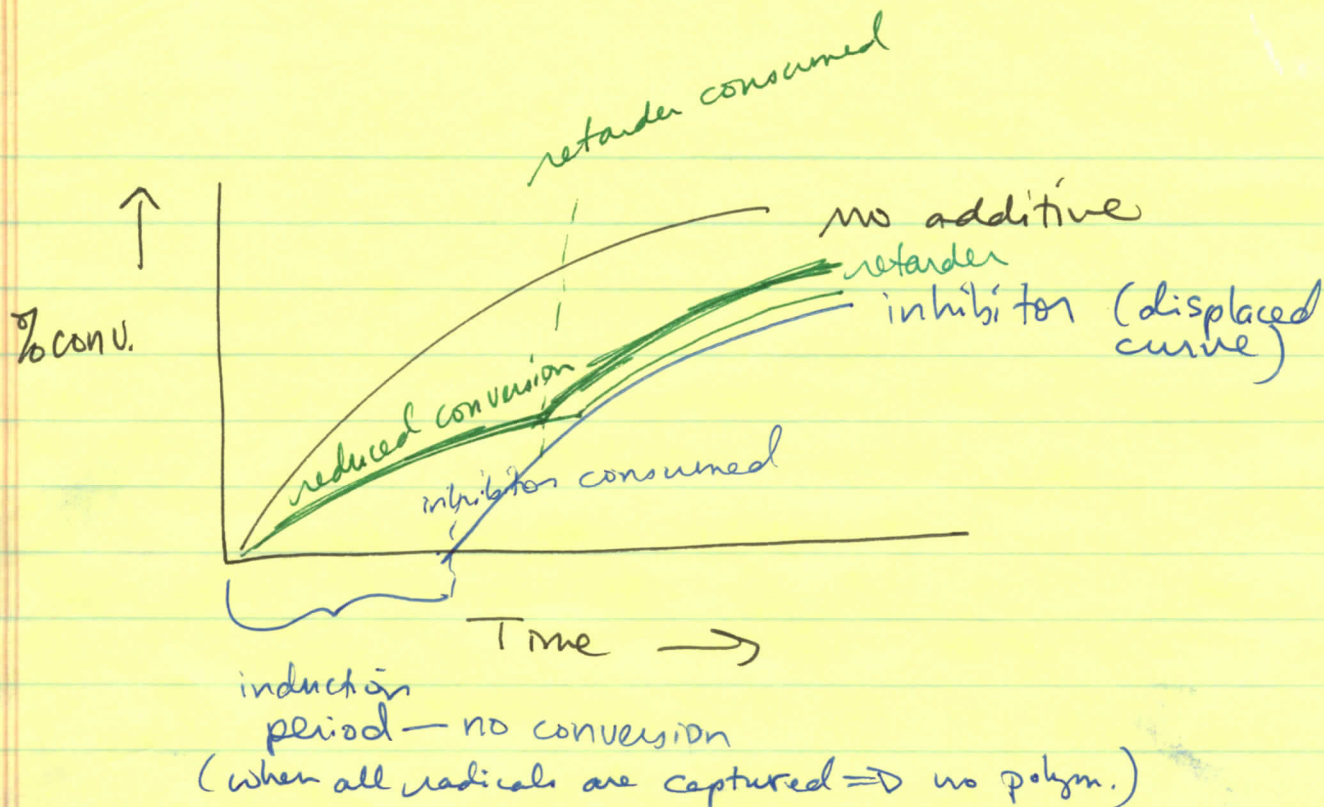 retarder consumed
no additive
retarder
inhibitor (displaced
curve)
% conv.
reduced conversion
inhibitor consumed
Time →
induction
period — no conversion
(when all radicals are captured ⇒ no polym.)